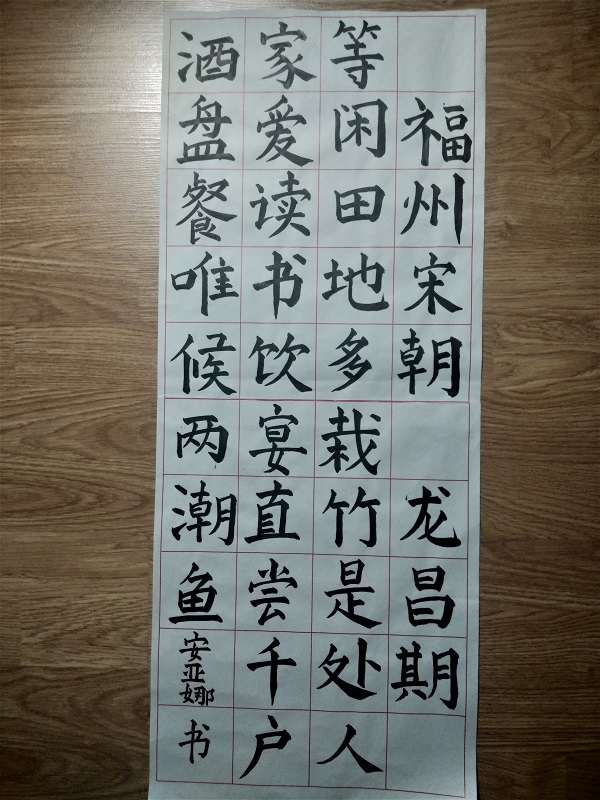 福州宋朝 龙昌期
等闲田地多栽竹是处人
家爱读书饮宴直尝千户
酒盘餐唯候两潮鱼 安亚娜书